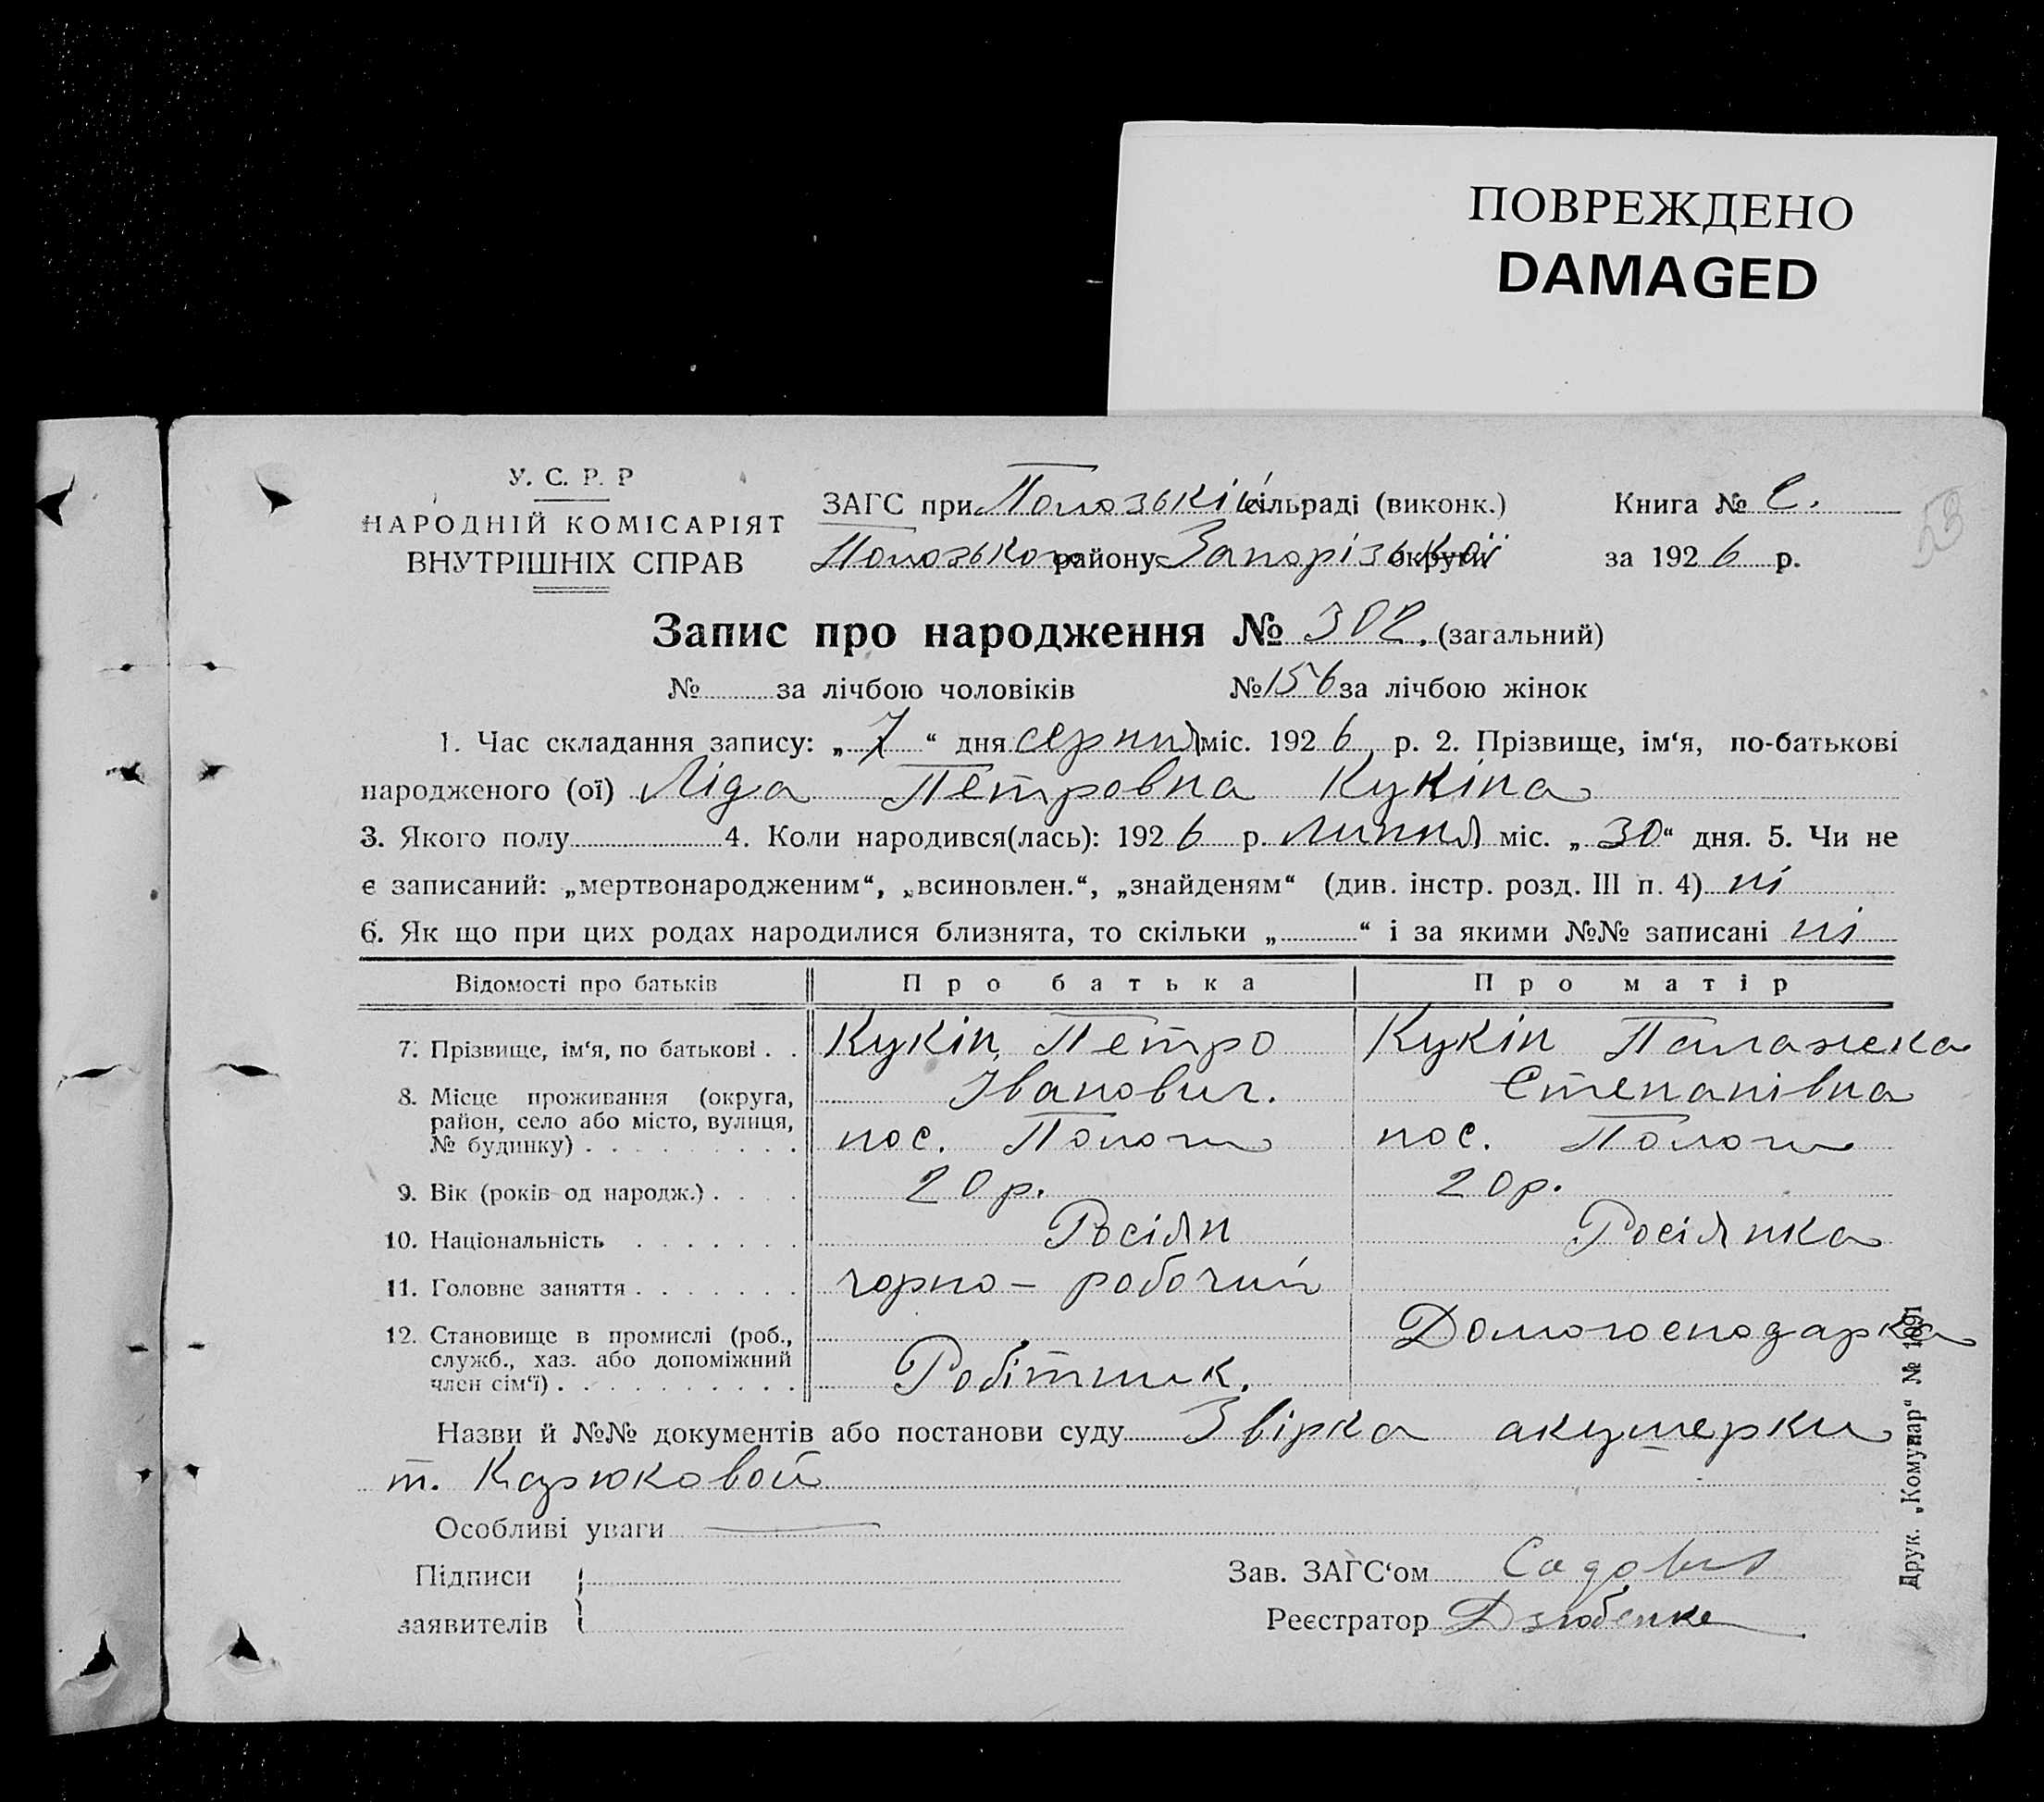 ПОВРЕЖДЕНО
DAMAGED
У. С. Р. Р
НАРОДНІЙ КОМІСАРІЯТ
ВНУТРІШНІХ СПРАВ
ЗАГС при Пологзькій сільраді (виконк.)
Пологзького району Запорізької округи
Книга № С.
за 1926 р.
53
Запис про народження № 302. (загальний)
№ за лічбою чоловіків № 156 за лічбою жінок
1. Час складання запису: „ 7 “ дня серпня міс. 1926 р. 2. Прізвище, ім‘я, по-батькові
народженого (ої) Ліда Петровна Кукіна
3. Якого полу 4. Коли народився(лась): 1926 р. липня міс. „ 30 “ дня. 5. Чи не
є записаний: „мертвонародженим“, „всиновлен.“, „знайденям“ (див. інстр. розд. III п. 4) ні
6. Як що при цих родах народилися близнята, то скільки „ “ і за якими №№ записані ні
Відомості про батьків Про батька Про матір
7. Прізвище, ім‘я, по батькові . . Кукін Петро Кукін Палажка
Іванович. Степанівна
8. Місце проживання (округа,
район, село або місто, вулиця,
№ будинку) . . . . . . . . . пос. Пологи пос. Пологи
9. Вік (років од народж.) . . . . 20 р. 20 р.
10. Національність . . . . . . . Росіян Росіянка
11. Головне заняття . . . . . . . чорно-робочий
Домогосподарка
12. Становище в промислі (роб.,
служб., хаз. або допоміжний
член сім‘ї) . . . . . . . . . . Робітник.
Назви й №№ документів або постанови суду Звірка акушерки
т. Карюковой
Особливі уваги
Підписи
заявителів
Зав. ЗАГС‘ом
Реєстратор Дзюбенко
Друк. „Комунар“ № 1891